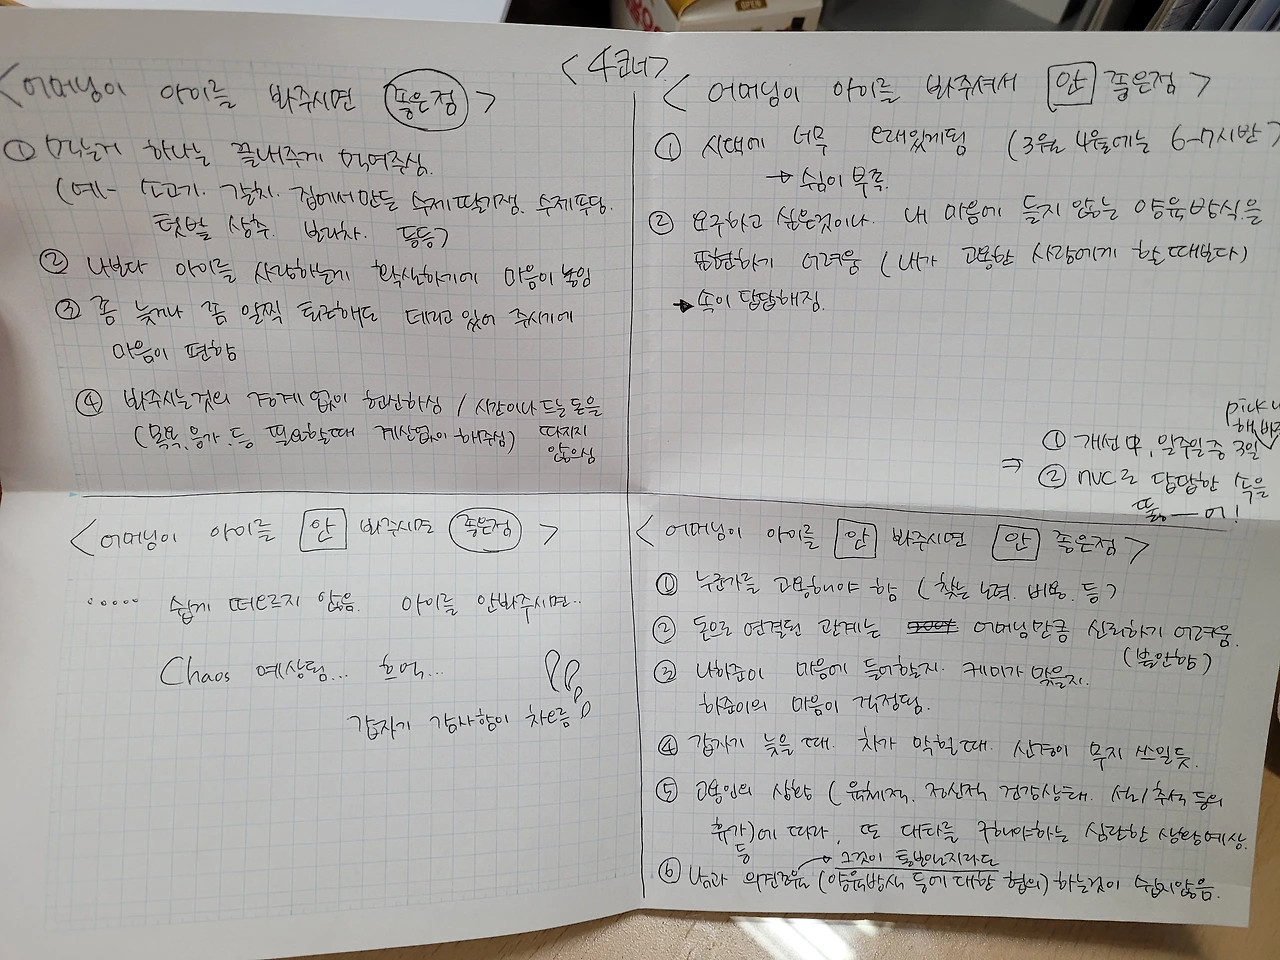 <4코너>
<어머님이 아이를 봐주시면 좋은점>
① 먹는거 하나는 끝내주게 먹여주심.
(예- 소고기. 갈치. 집에서만든 수제딸기잼. 수제푸딩.
텃밭 상추. 보리차. 등등)
② 나보다 아이를 사랑하는게 확실하기에 마음이 놓임
③ 좀 늦거나 좀 일찍 퇴근해도 데리고 있어 주시기에
마음이 편함
④ 봐주시는것의 경계 없이 헌신하심 / 시간이나 드는 돈을
(목욕, 응가, 등 필요할때 계산없이 해주심) 따지지
않으심
<어머님이 아이를 봐주셔서 안 좋은점>
① 시댁에 너무 오래있게됨 (3월 4월에는 6-7시반)
→ 쉼이 부족.
② 요구하고 싶은것이나. 내 마음에 들지 않는 양육방식을
표현하기 어려움 (내가 고용한 사람에게 할때보다)
→ 속이 답답해짐.
pick u
해봐
⇒ ① 개선中, 일주일중 3일
② nvc로 답답한 속을
뚫ㅡ어!
<어머님이 아이를 안 봐주시면 좋은점>
..... 쉽게 떠오르지 않음. 아이를 안봐주시면..
Chaos 예상됨... 흐억...
갑자기 감사함이 차오름
<어머님이 아이를 안 봐주시면 안 좋은점>
① 누군가를 고용해야 함 (찾는 노력. 비용. 등)
② 돈으로 연결된 관계는 어머님만큼 신뢰하기 어려움.
(불안함)
③ 나하준이 마음에 들어할지. 케미가 맞을지.
하준이의 마음이 걱정됨.
④ 갑자기 늦을 때. 차가 막힐때. 신경이 무지 쓰일듯.
⑤ 고용인의 상황 (육체적. 정신적 건강상태. 설/추석 등의
휴가)에 따라, 또 대타를 구해야하는 심란한 상황예상.
등
→ 그것이 돌변일지라도
⑥ 남과 의견조율 (양육방식 등에 대한 협의) 하는것이 쉽지않음.